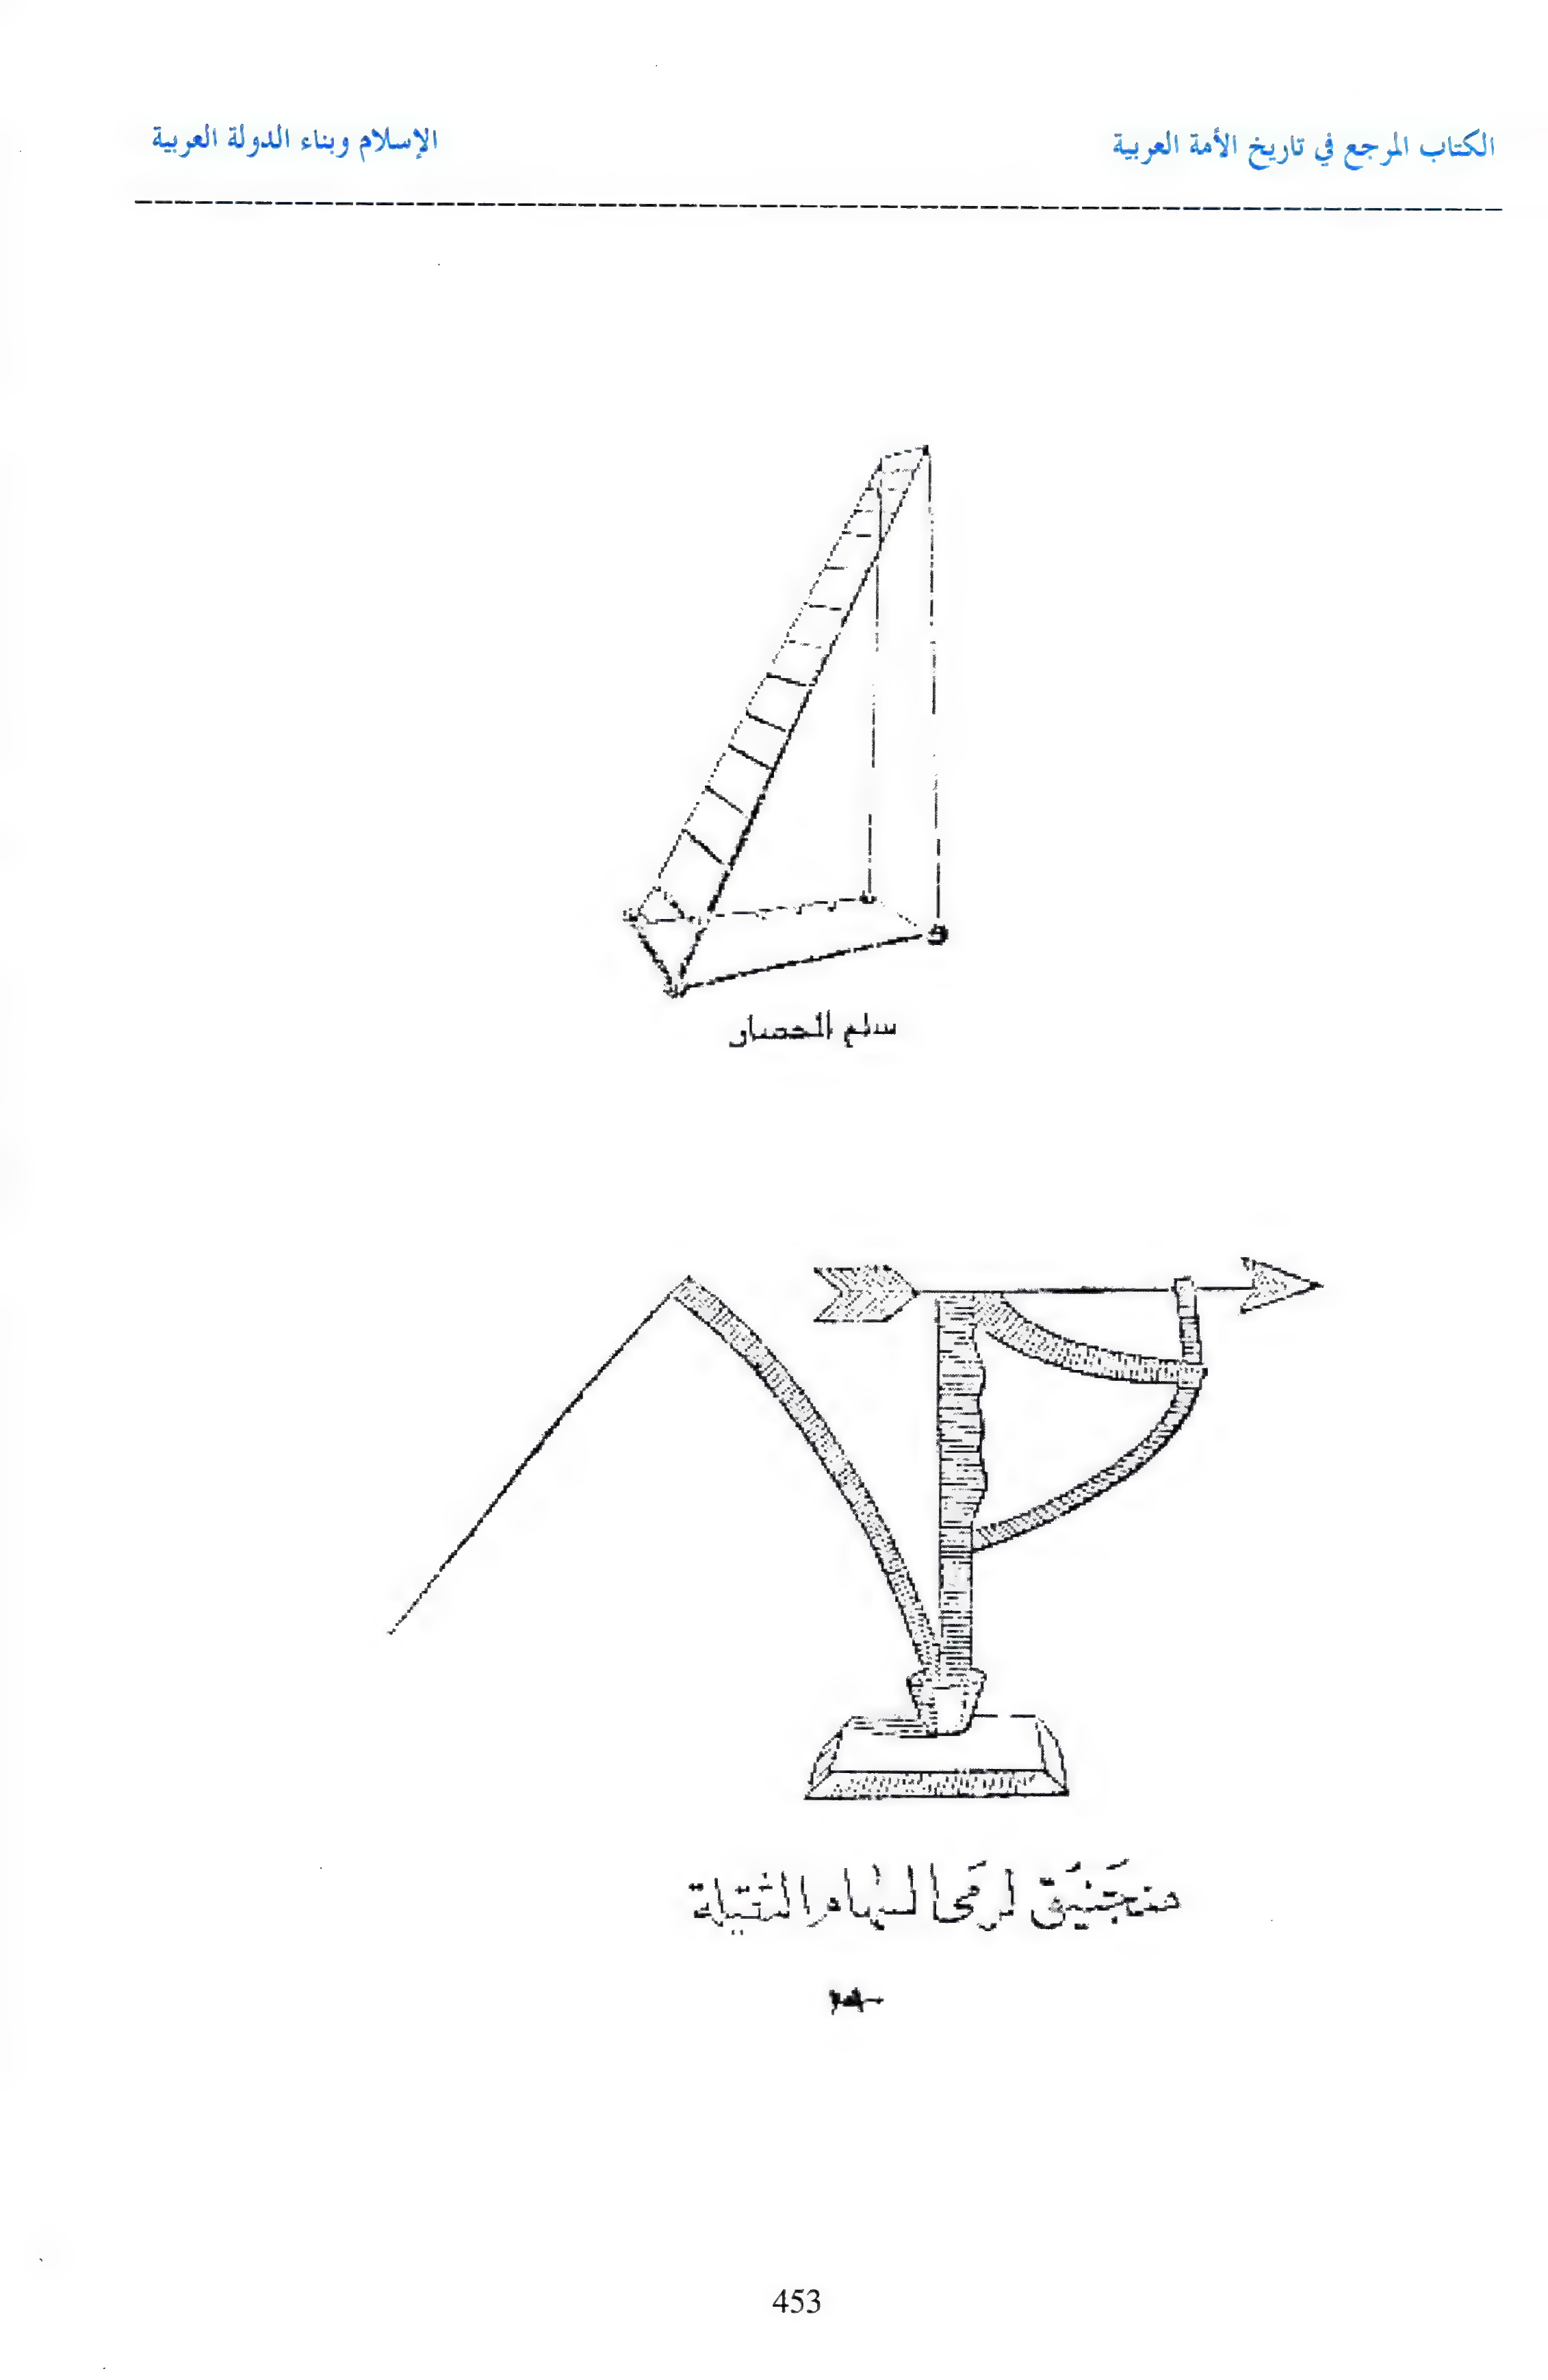 الكتاب المرجع في تاريخ الأمة العربية
الإسلام وبناء الدولة العربية
سلم الحصار
منجنيق لرمي السهام الثقيلة
453